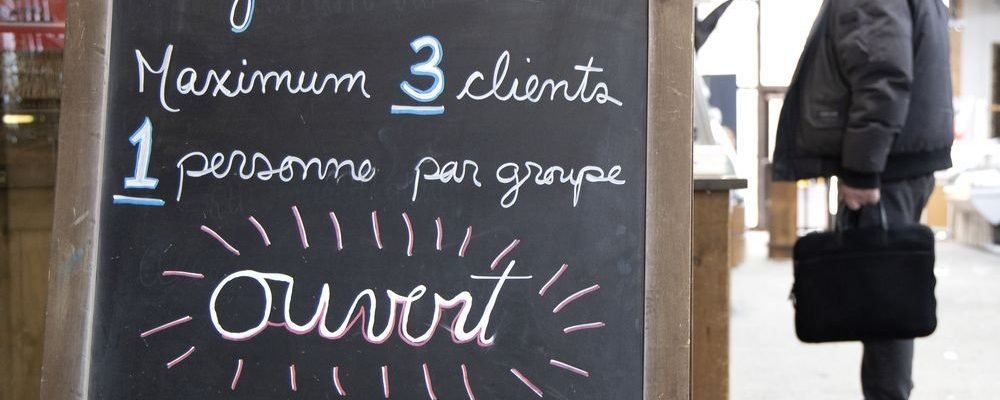 Maximum 3 clients
1 personne par groupe
ouvert